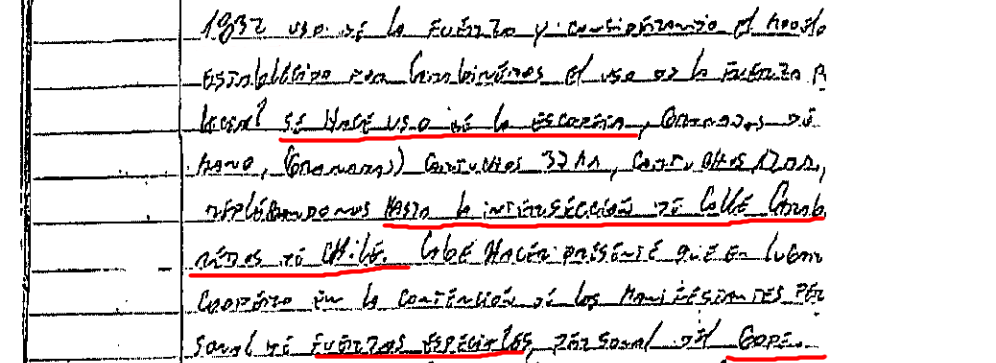 1832 uso de la fuerza y considerando el modelo
establecido por Carabineros el uso de la fuerza
se hace uso de la escopeta, Granadas de
mano, (Granadas) Cartuchos 37 mm, Cartuchos 12mm,
replegandonos hasta la intersección de calle Carabi
neros de Chile. Cabe hacer presente que en lugar
Coopero en la contención de los manifestantes per
sonal de fuerzas especiales, personal del GOPE.